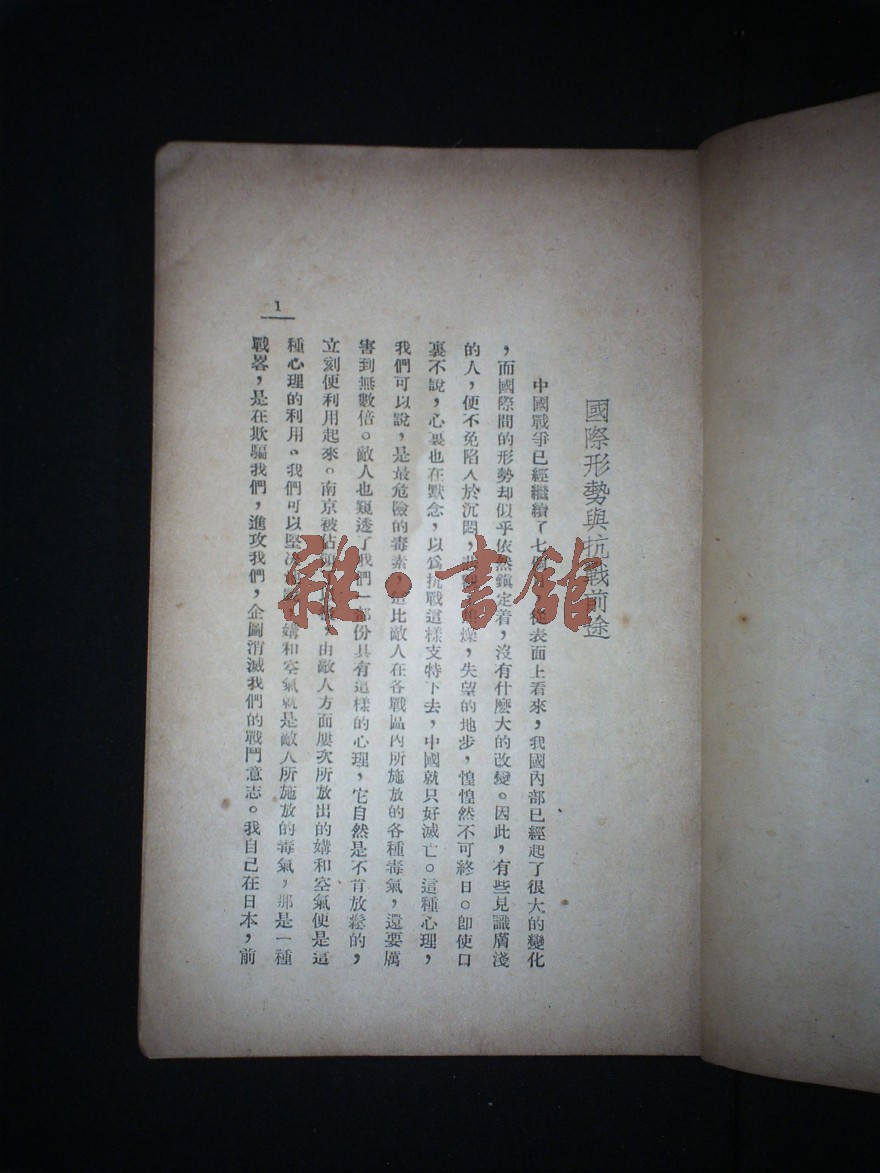 國際形勢與抗戰前途
中國戰爭已經繼續了七從表面上看來，我國內部已經起了很大的變化
，而國際間的形勢却似乎依然鎭定着，沒有什麽大的改變。因此，有些見識膚淺
的人，便不免陷入於沉悶，燥，失望的地步，惶惶然不可終日。卽使口
裏不說，心裏也在默念，以爲抗戰這樣支特下去，中國就只好滅亡。這種心理，
我們可以說，是最危險的毒素，這比敵人在各戰區內所施放的各種毒氣，還要厲
害到無數倍。敵人也窺透了我們一部份具有這樣的心理，它自然是不肯放鬆的，
立刻便利用起來。南京被佔由敵人方面屢次所放出的媾和空氣便是這
種心理的利用。我們可以堅決媾和空氣就是敵人所施放的毒氣，那是一種
戰畧，是在欺騙我們，進攻我們，企圖消滅我們的戰鬥意志。我自己在日本，前
1
雜·書館